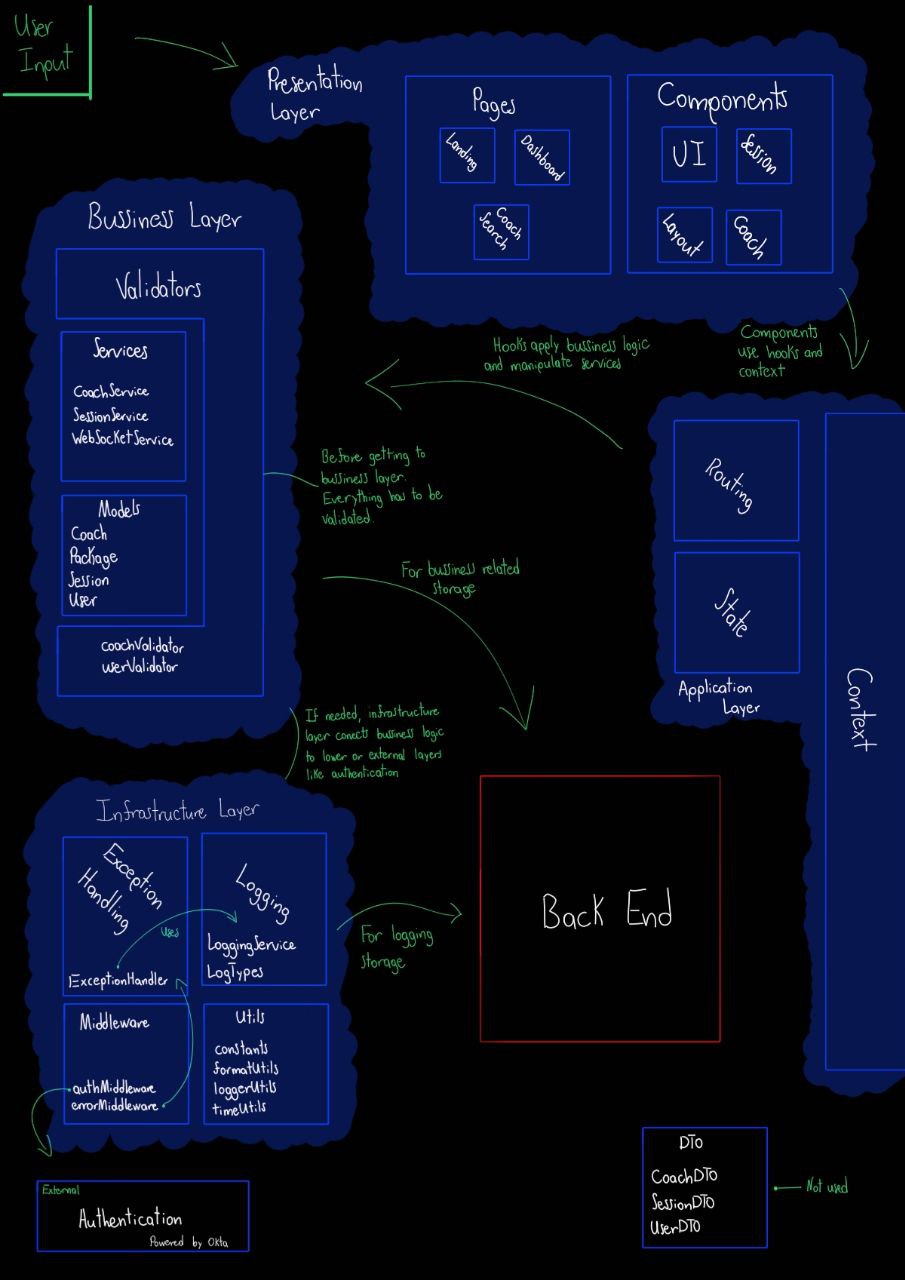 User
Input
Presentation
Layer
Pages
Landing
Dashboard
Coach
Search
Components
UI
Session
Layout
Coach
Components
use hooks and
context
Hooks apply bussiness logic
and manipulate services
Bussiness Layer
Validators
Services
CoachService
SessionService
WebSocketService
Models
Coach
Package
Session
User
coachValidator
userValidator
Before getting to
bussiness layer.
Everything has to be
validated.
For bussiness related
storage
Routing
State
Application
Layer
Context
If needed, infrastructure
layer conects business logic
to lower or external layers
like authentication
Infrastructure Layer
Exception
Handling
ExceptionHandler
uses
Logging
LoggingService
LogTypes
Middleware
authMiddleware
errorMiddleware
Utils
constants
formatUtils
loggerUtils
timeUtils
For logging
storage
Back End
External
Authentication
Powered by Okta
DTO
CoachDTO
SessionDTO
UserDTO
Not used